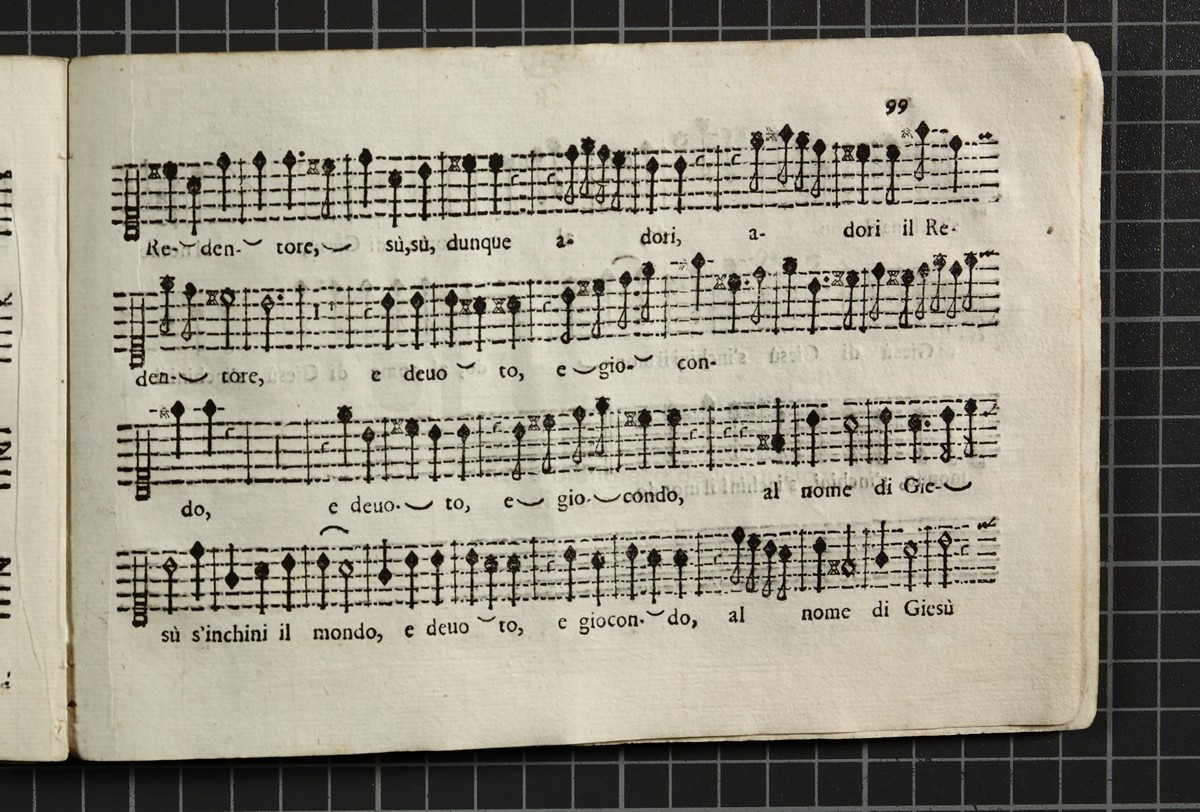 99
Re- den- tore, sù,sù, dunque a- dori, a- dori il Re-
den- tore, e deuo to, e gio- con-
do, e deuo- to, e gio- condo, al nome di Gie-
sù s'inchini il mondo, e deuo to, e giocon- do, al nome di Giesù